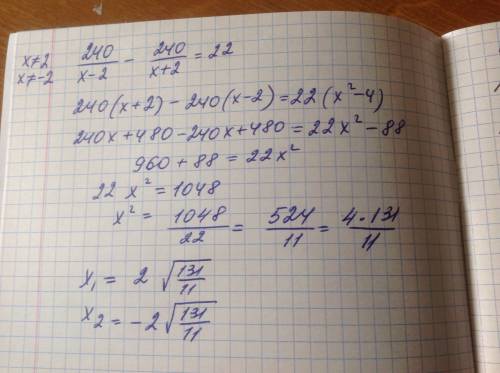 x≠2 240/(x-2) - 240/(x+2) = 22
x≠-2
240(x+2) - 240(x-2) = 22(x²-4)
240x+480-240x+480 = 22x²-88
960 + 88 = 22x²
22 x² = 1048
x² = 1048/22 = 524/11 = 4·131/11
x₁ = 2 √(131/11)
x₂ = -2 √(131/11)